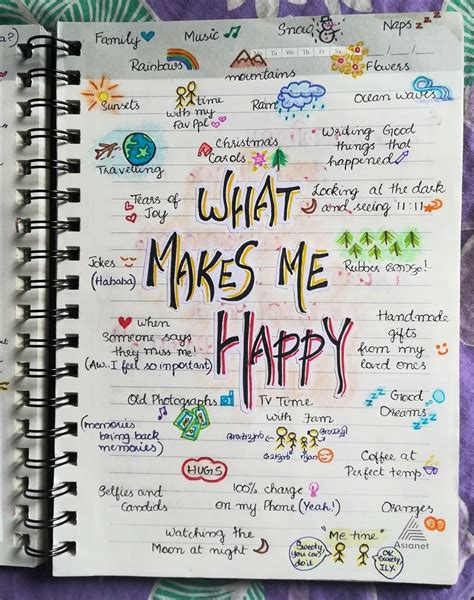 Family Music Snow Naps zzz
Mo Tu We Th Fr Sa
Rainbows mountains Flowers
Sunsets time with my fav ppl Rain Ocean waves
Travelling Christmas Carols Writing Good things that happened
Tears of Joy
Looking at the dark and seeing '11:11
WHAT
MAKES ME
HAPPY
Jokes
(Hahaha)
Rubber
When someone says
they miss me!
(Aw.. I feel so important)
Handmade
gifts
from my
loved ones
Old Photographs
TV Time
With Fam
Good
Dreams zzz
(memories
bring back
memories)
HUGS
Coffee at
Perfect temp.
Selfies and
Candids
100% charge
on my Phone (Yeah!)
Oranges
Watching the
Moon at night
"Me time"
Sweety,
You can
do it
OK
Sweety,
ILY.
Asianet